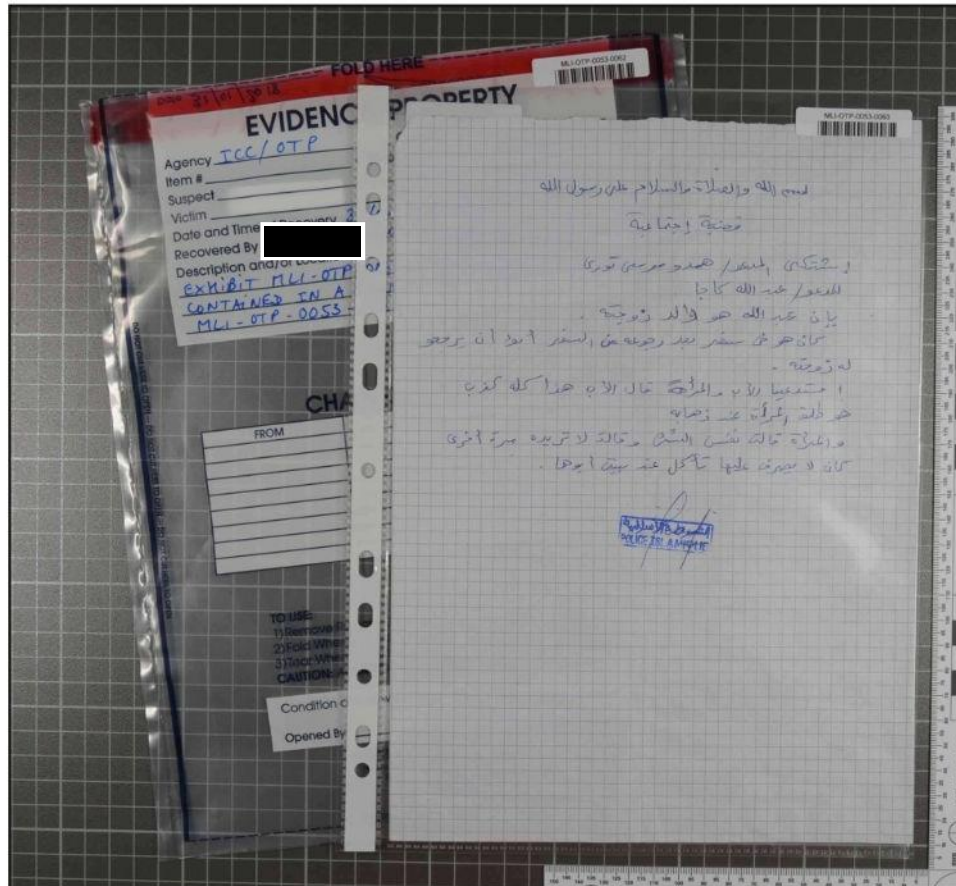 FOLD HERE
MLI-OTP-0053-0062
31/01/2018
EVIDENC PROPERTY
Agency ICC/OTP
Item #
Suspect
Victim
Date and Time Recovery 3
Recovered By
Description and/or Locat
EXHIBIT MLI-OTP
CONTAINED IN A
MLI-OTP-0053-
CHA
FROM
TO USE:
1) Remove
2) Fold Wher
3) Tear Wher
CAUTION:
Condition o
Opened By
MLI-OTP-0053-0063
بسم الله والصلاة والسلام على رسول الله
قضية إجتماعية
إشتكى المدعو/ همدو موسى توري
المدعو/ عبد الله كاجا
بإن عبد الله هو والد زوجته .
كان هو في سفر بعد رجوعه من السفر أبوا أن يرجعو
له زوجته .
الأب والمرأة قال الأب هذا كله كذب
المرأة
والمرأة قالت نفس الشئ وقالت لا تريده مرة أخرى
كان لا يصرف عليها تأكل عند بيت أبوها .
الشرطة الإسلامية
POLICE ISLAMIQUE